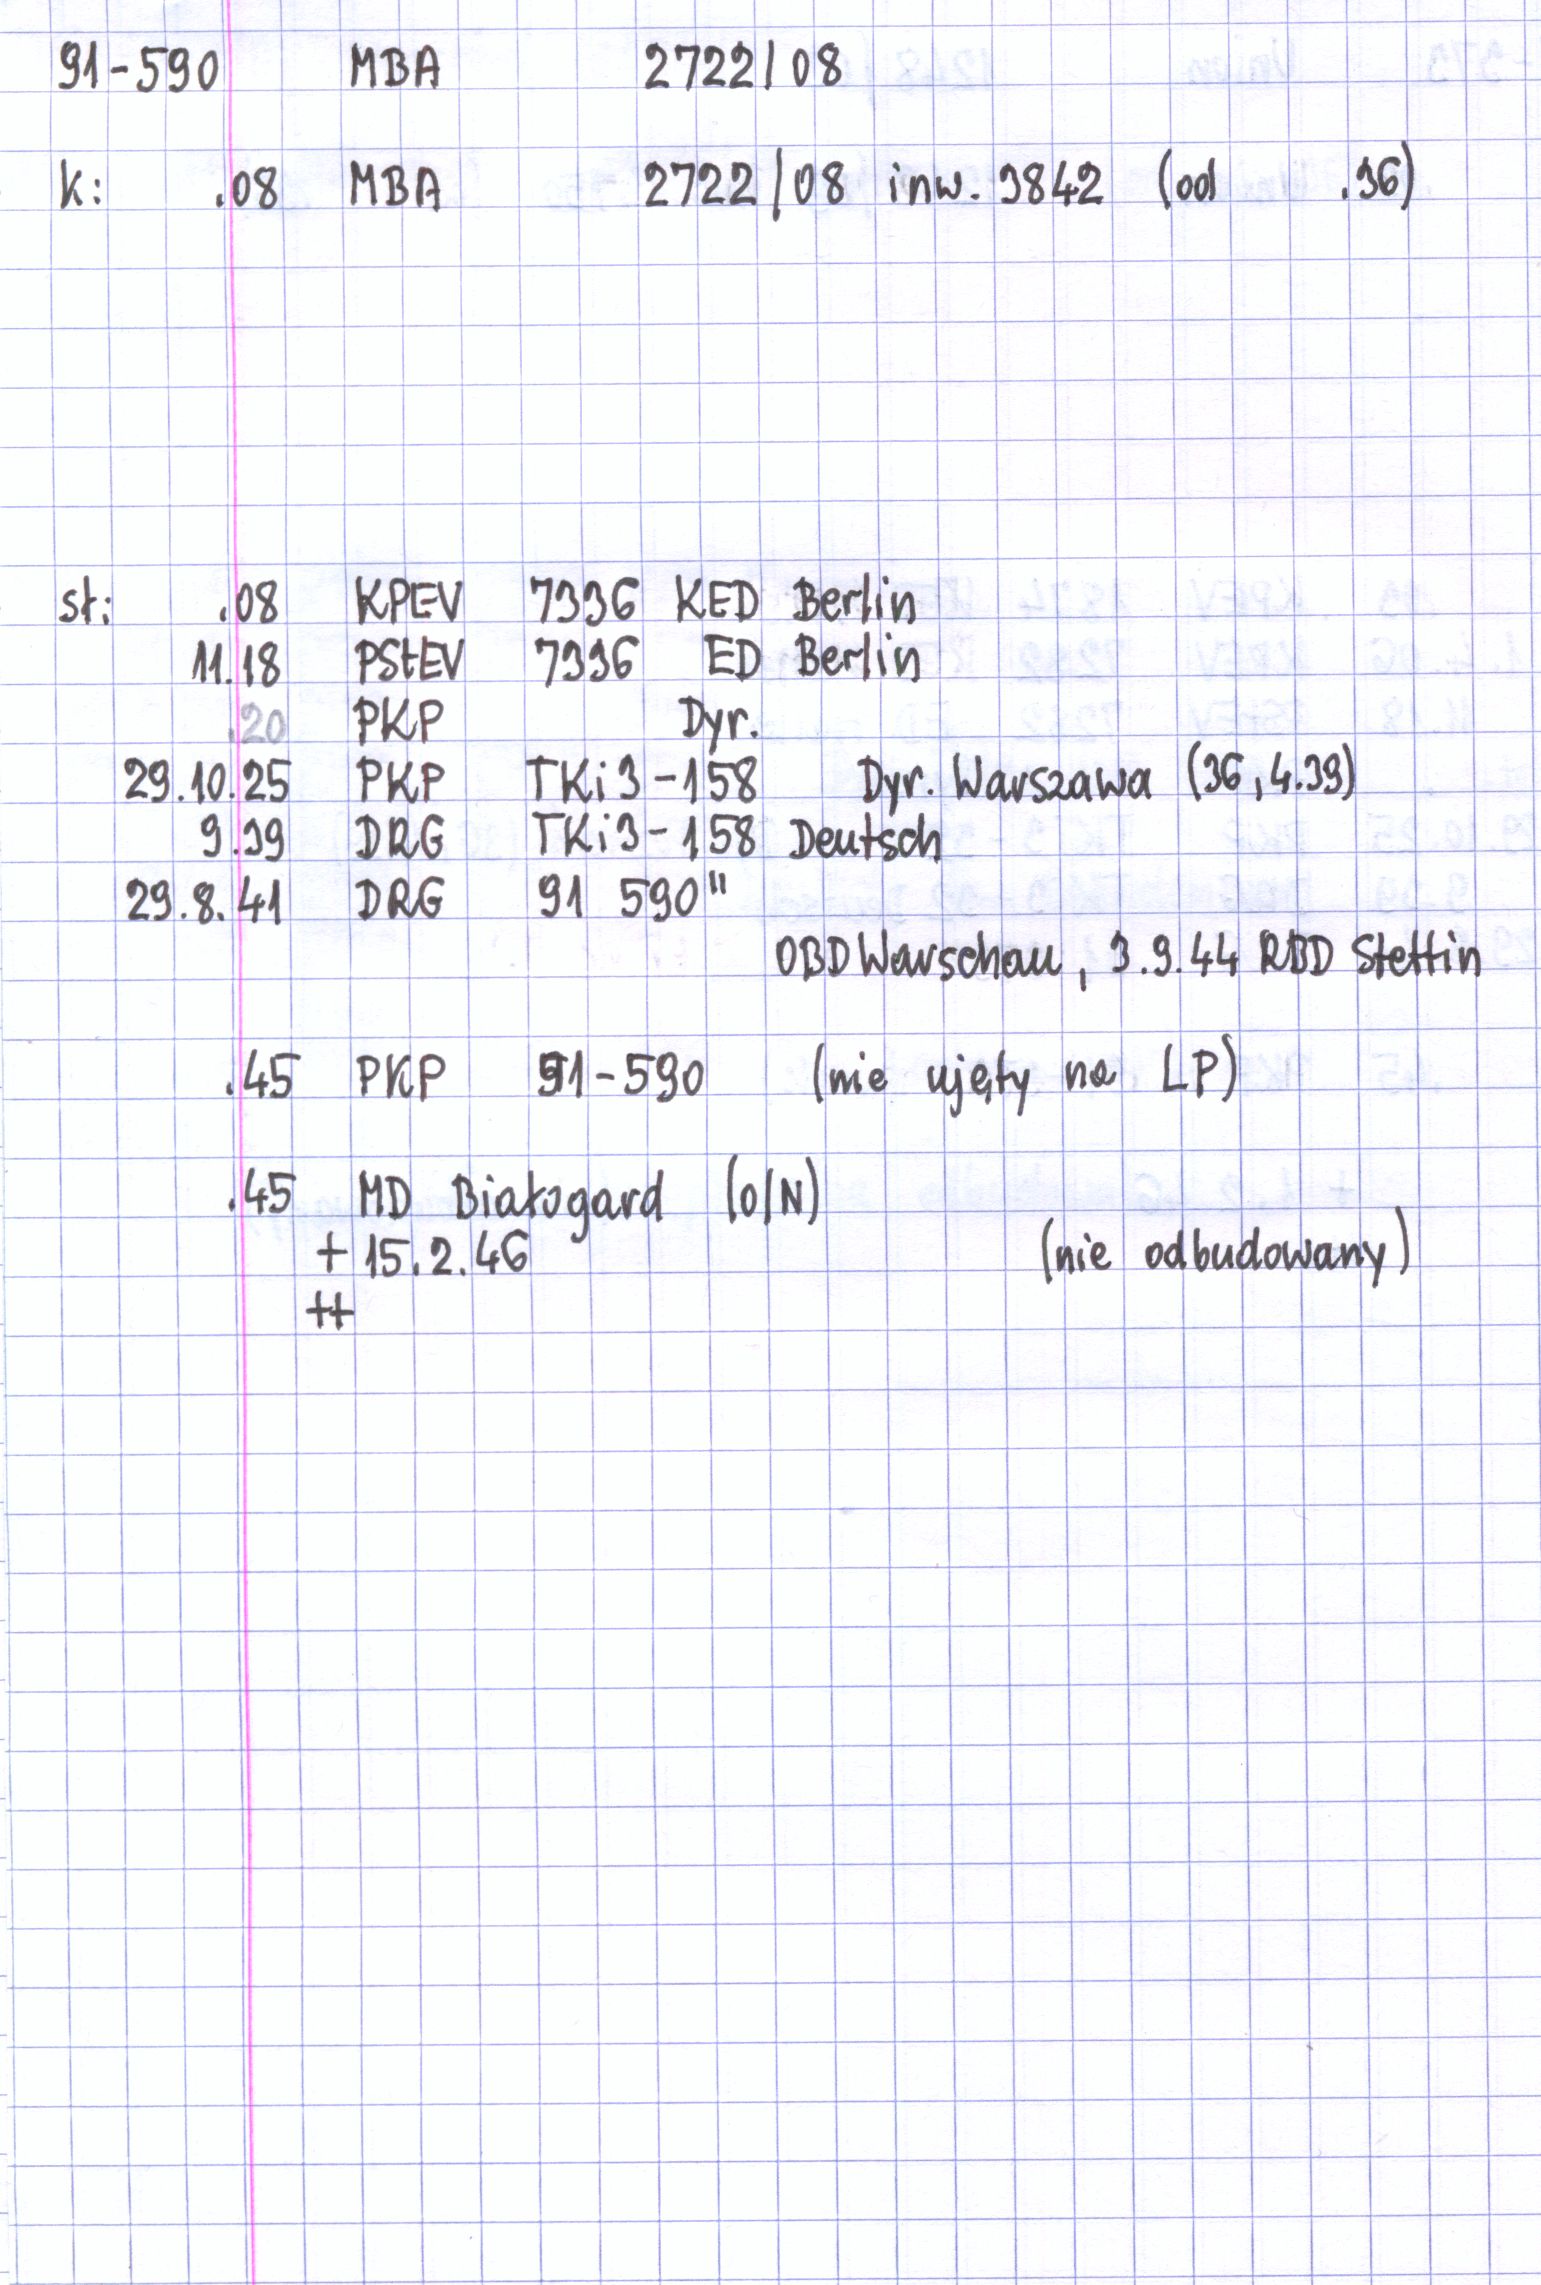 91-590 MBA 2722/08
k: .08 MBA 2722/08 inw. 3842 (od .36)
st: .08 KPEV 7336 KED Berlin
11.18 PStEV 7336 ED Berlin
.20 PKP Dyr.
29.10.25 PKP TKi3-158 Dyr. Warszawa (36, 4.39)
9.39 DRG TKi3-158 Deutsch
29.8.41 DRG 91 590"
OBD Warschau, 3.9.44 RBD Stettin
.45 PKP 91-590 (nie ujęty na LP)
.45 MD Białogard (O/N)
+ 15.2.46 (nie odbudowany)
++